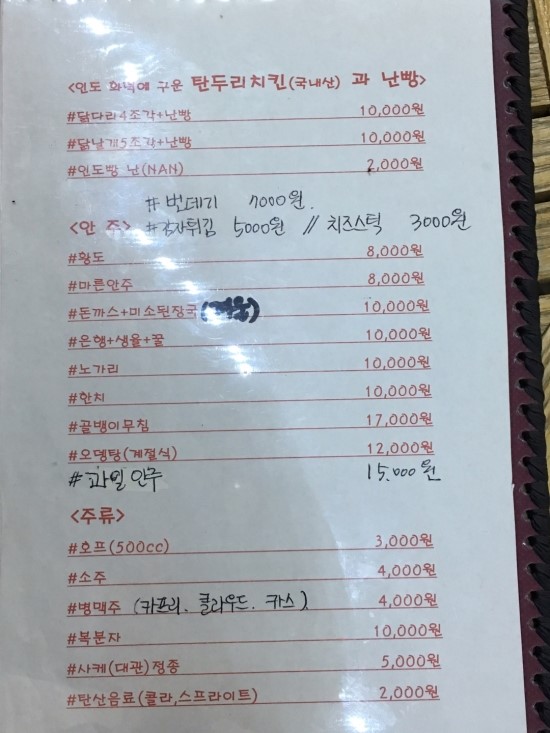 <인도 화덕에 구운 탄두리치킨(국내산) 과 난빵>
#닭다리4조각+난빵 10,000원
#닭날개5조각+난빵 10,000원
#인도빵 난(NAN) 2,000원
#번데기 7000원.
<안 주> #감자튀김 5000원 // 치즈스틱 3000원
#황도 8,000원
#마른안주 8,000원
#돈까스+미소된장국 10,000원
#은행+생율+꿀 10,000원
#노가리 10,000원
#한치 10,000원
#골뱅이무침 17,000원
#오뎅탕(계절식) 12,000원
#과일안주 15,000원
<주류>
#호프(500cc) 3,000원
#소주 4,000원
#병맥주 (카프리. 클라우드. 카스) 4,000원
#복분자 10,000원
#사케(대관)정종 5,000원
#탄산음료(콜라,스프라이트) 2,000원